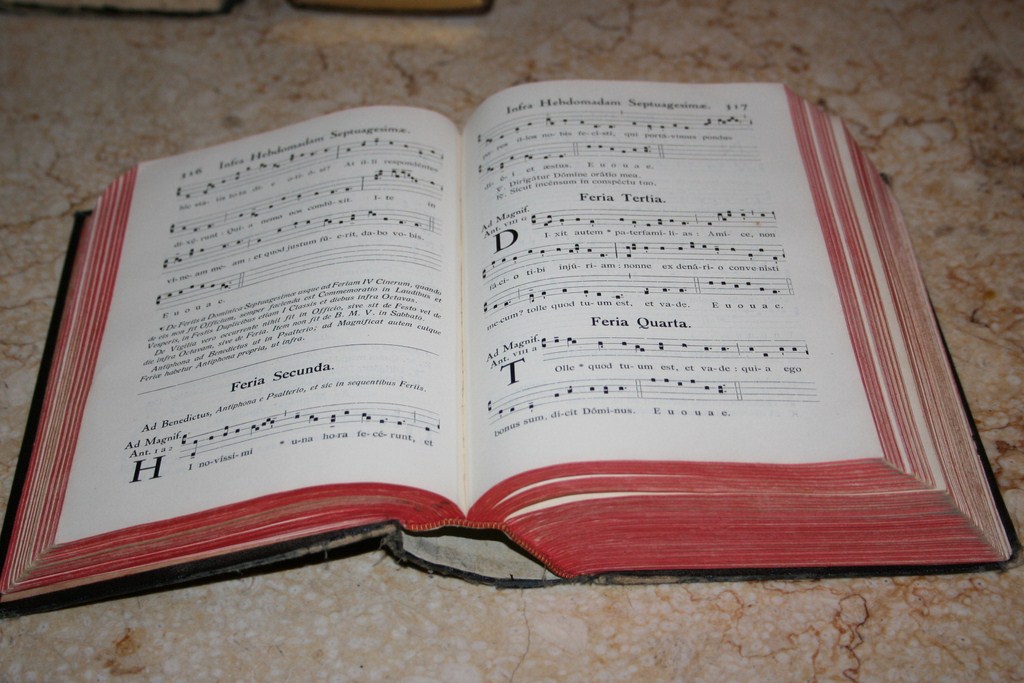 316 Infra Hebdomadam Septuagesimæ.
At il-li respondéntes
di-xé-runt : Qui-a nemo nos condú-xit. I-te in
ví-ne-am me-am : et quod justum fú-e-rit, dabo vo-bis.
E u o u a e.
¶ De Feriis a Dominica Septuagesimæ usque ad Feriam IV Cinerum, quando
de eis non fit Officium, semper facienda est Commemoratio in Laudibus et
Vesperis, in Festis Duplicibus etiam I Classis et diebus infra Octavas.
De Vigilia vero occurrente nihil fit in Officio, sive sit de Festo vel de
die infra Octavam, sive de Feria. Item non fit de B. M. V. in Sabbato.
Antiphona ad Benedictus ut in Psalterio; ad Magnificat autem cuique
Feriæ habetur Antiphona propria, ut infra.
Feria Secunda.
Ad Benedictus, Antiphona e Psalterio, et sic in sequentibus Feriis.
Ad Magnif.
Ant. 1 a 2
H I no-víssi-mi * u-na ho-ra fe-cé-runt, et
Infra Hebdomadam Septuagesimæ. 317
pa-res il-los no-bis fe-cí-sti, qui portá-vimus pondus
di-é-i et æstus. E u o u a e.
℣. Dirigátur Dómine orátio mea.
℟. Sicut incénsum in conspéctu tuo.
Feria Tertia.
Ad Magnif.
Ant. VIII G
D I xit autem * pa-terfamí-li-as : Amí-ce, non
fá-ci-o ti-bi injú-ri-am : nonne ex dená-ri-o conve-nísti
me-cum? tolle quod tu-um est, et va-de. E u o u a e.
Feria Quarta.
Ad Magnif.
Ant. VIII a
T Olle * quod tu-um est, et va-de : qui-a ego
bonus sum, di-cit Dómi-nus. E u o u a e.